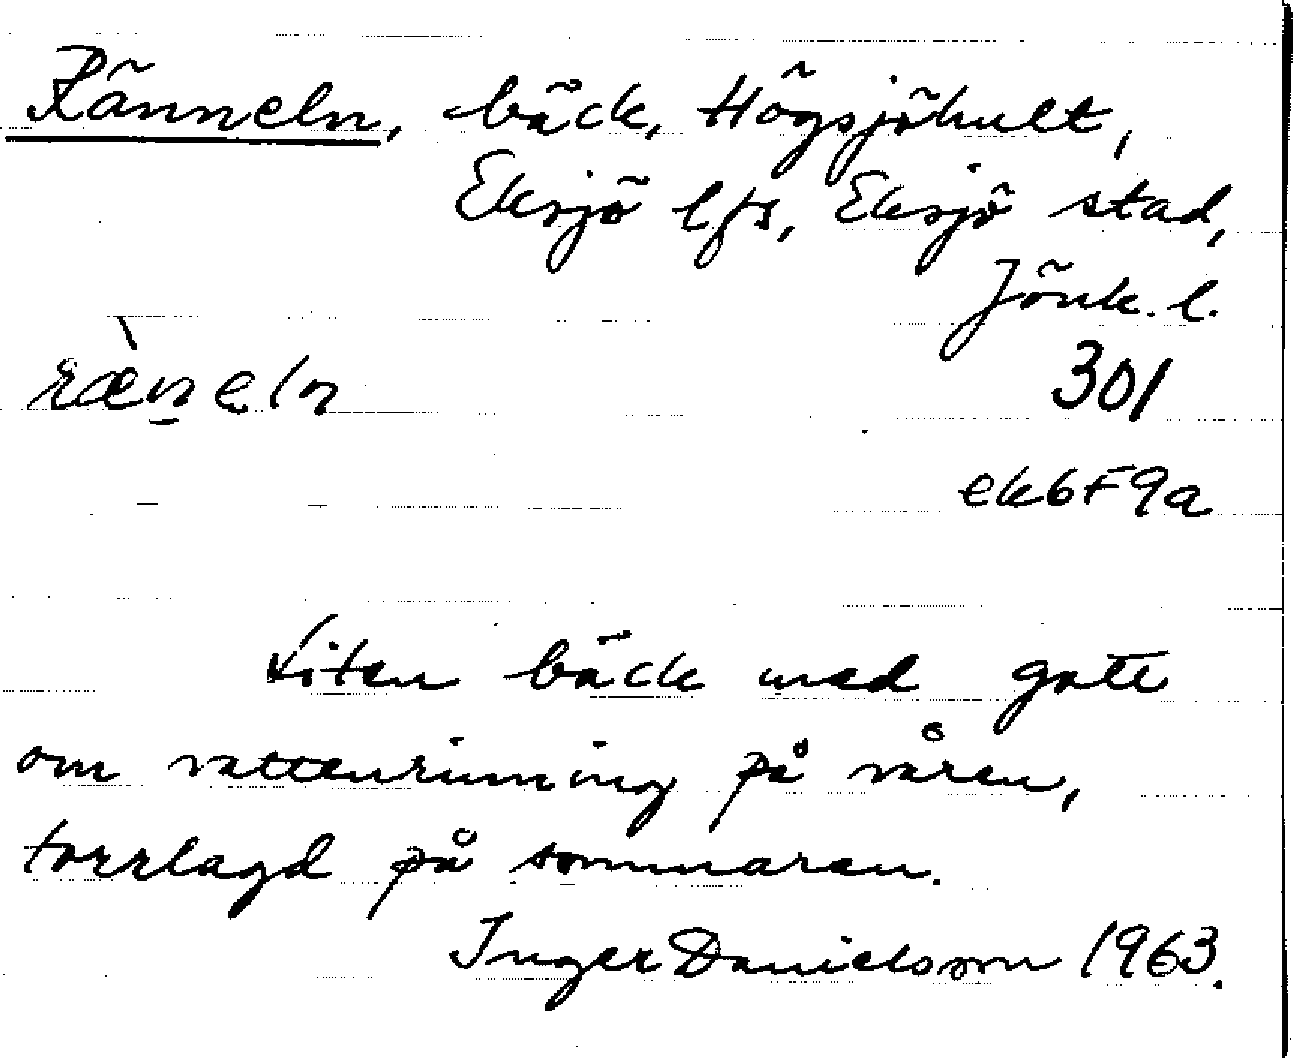 Ränneln, bäck, Högsjöhult,
Eksjö lfs, Eksjö stad,
Jönk. l.
ræ̀n̠eln
301
ek6F9a
Liten bäck med gott
om vattenrinning på våren,
torrlagd på sommaren.
Inger Danielsson 1963.